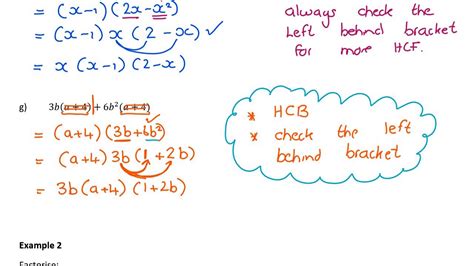 = (x-1)(2x-x²)
= (x-1) x (2-x) ✓
= x (x-1)(2-x)
always check the
left behind bracket
for more HCF.
g) 3b(a+4)+6b²(a+4)
= (a+4)(3b+6b²)
= (a+4) 3b(1+2b)
= 3b(a+4)(1+2b)
* HCB
* check the left
behind bracket
Example 2
Factorise: